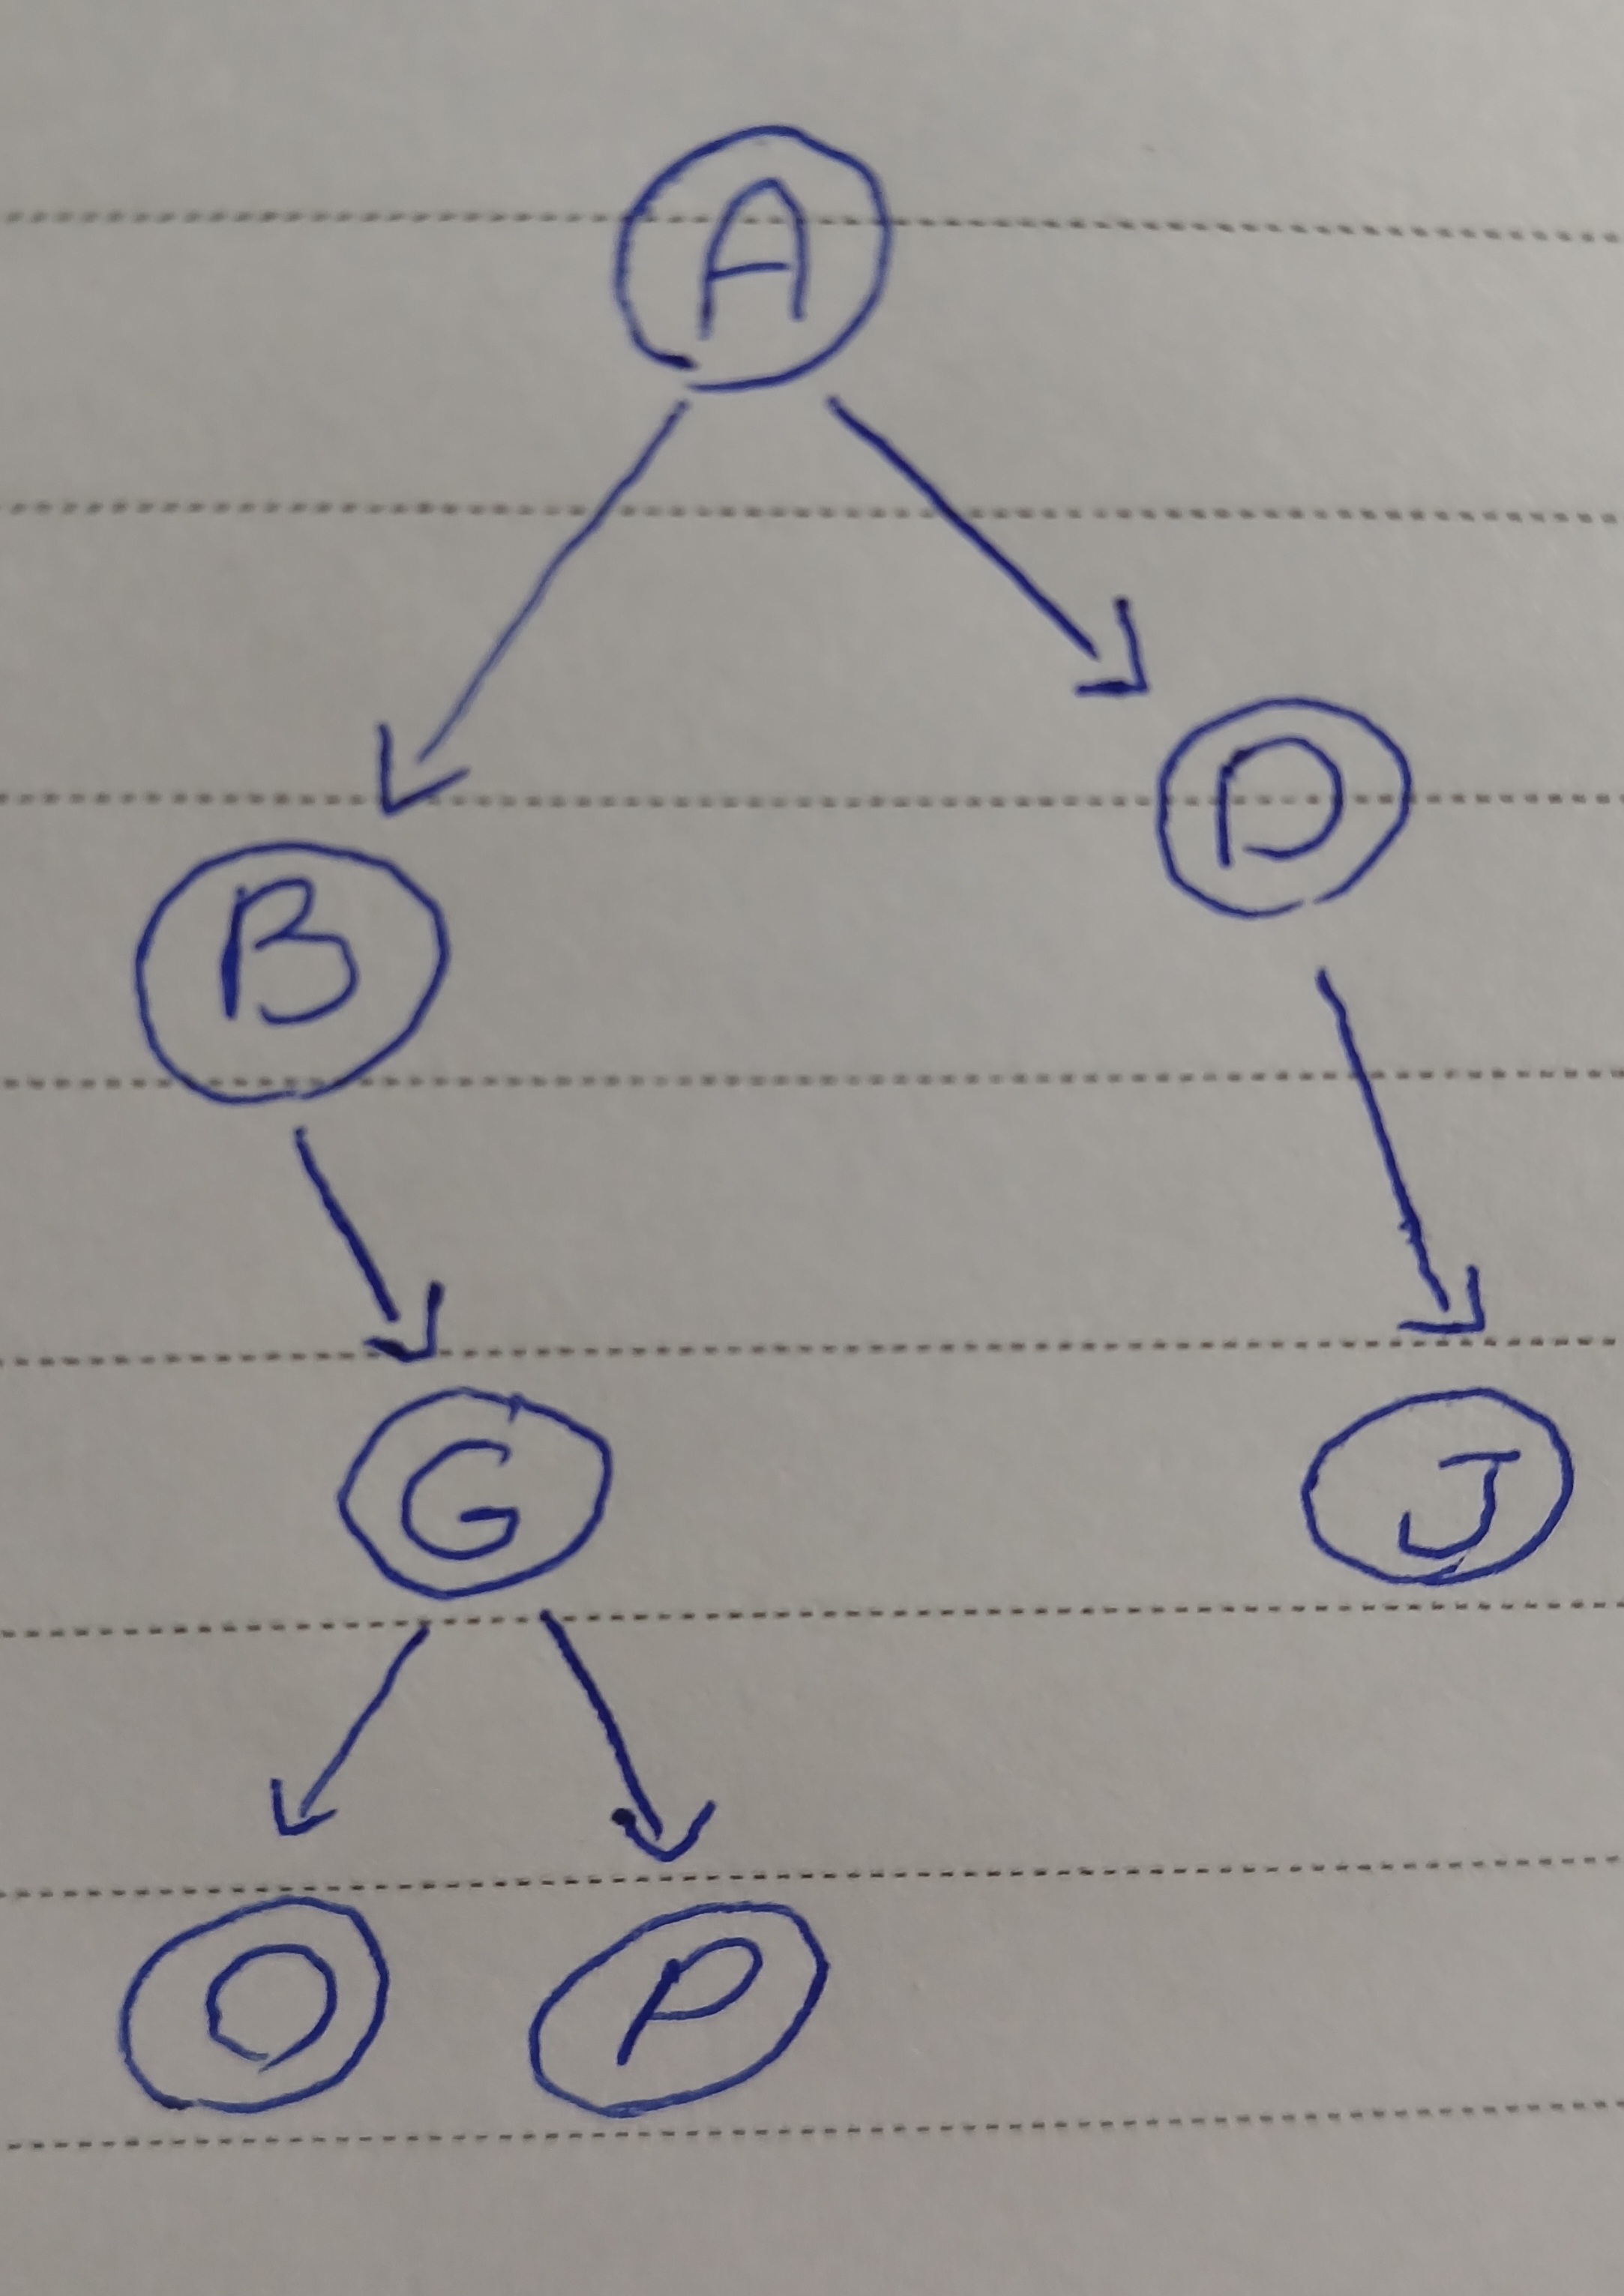 A
B D
G J
O P